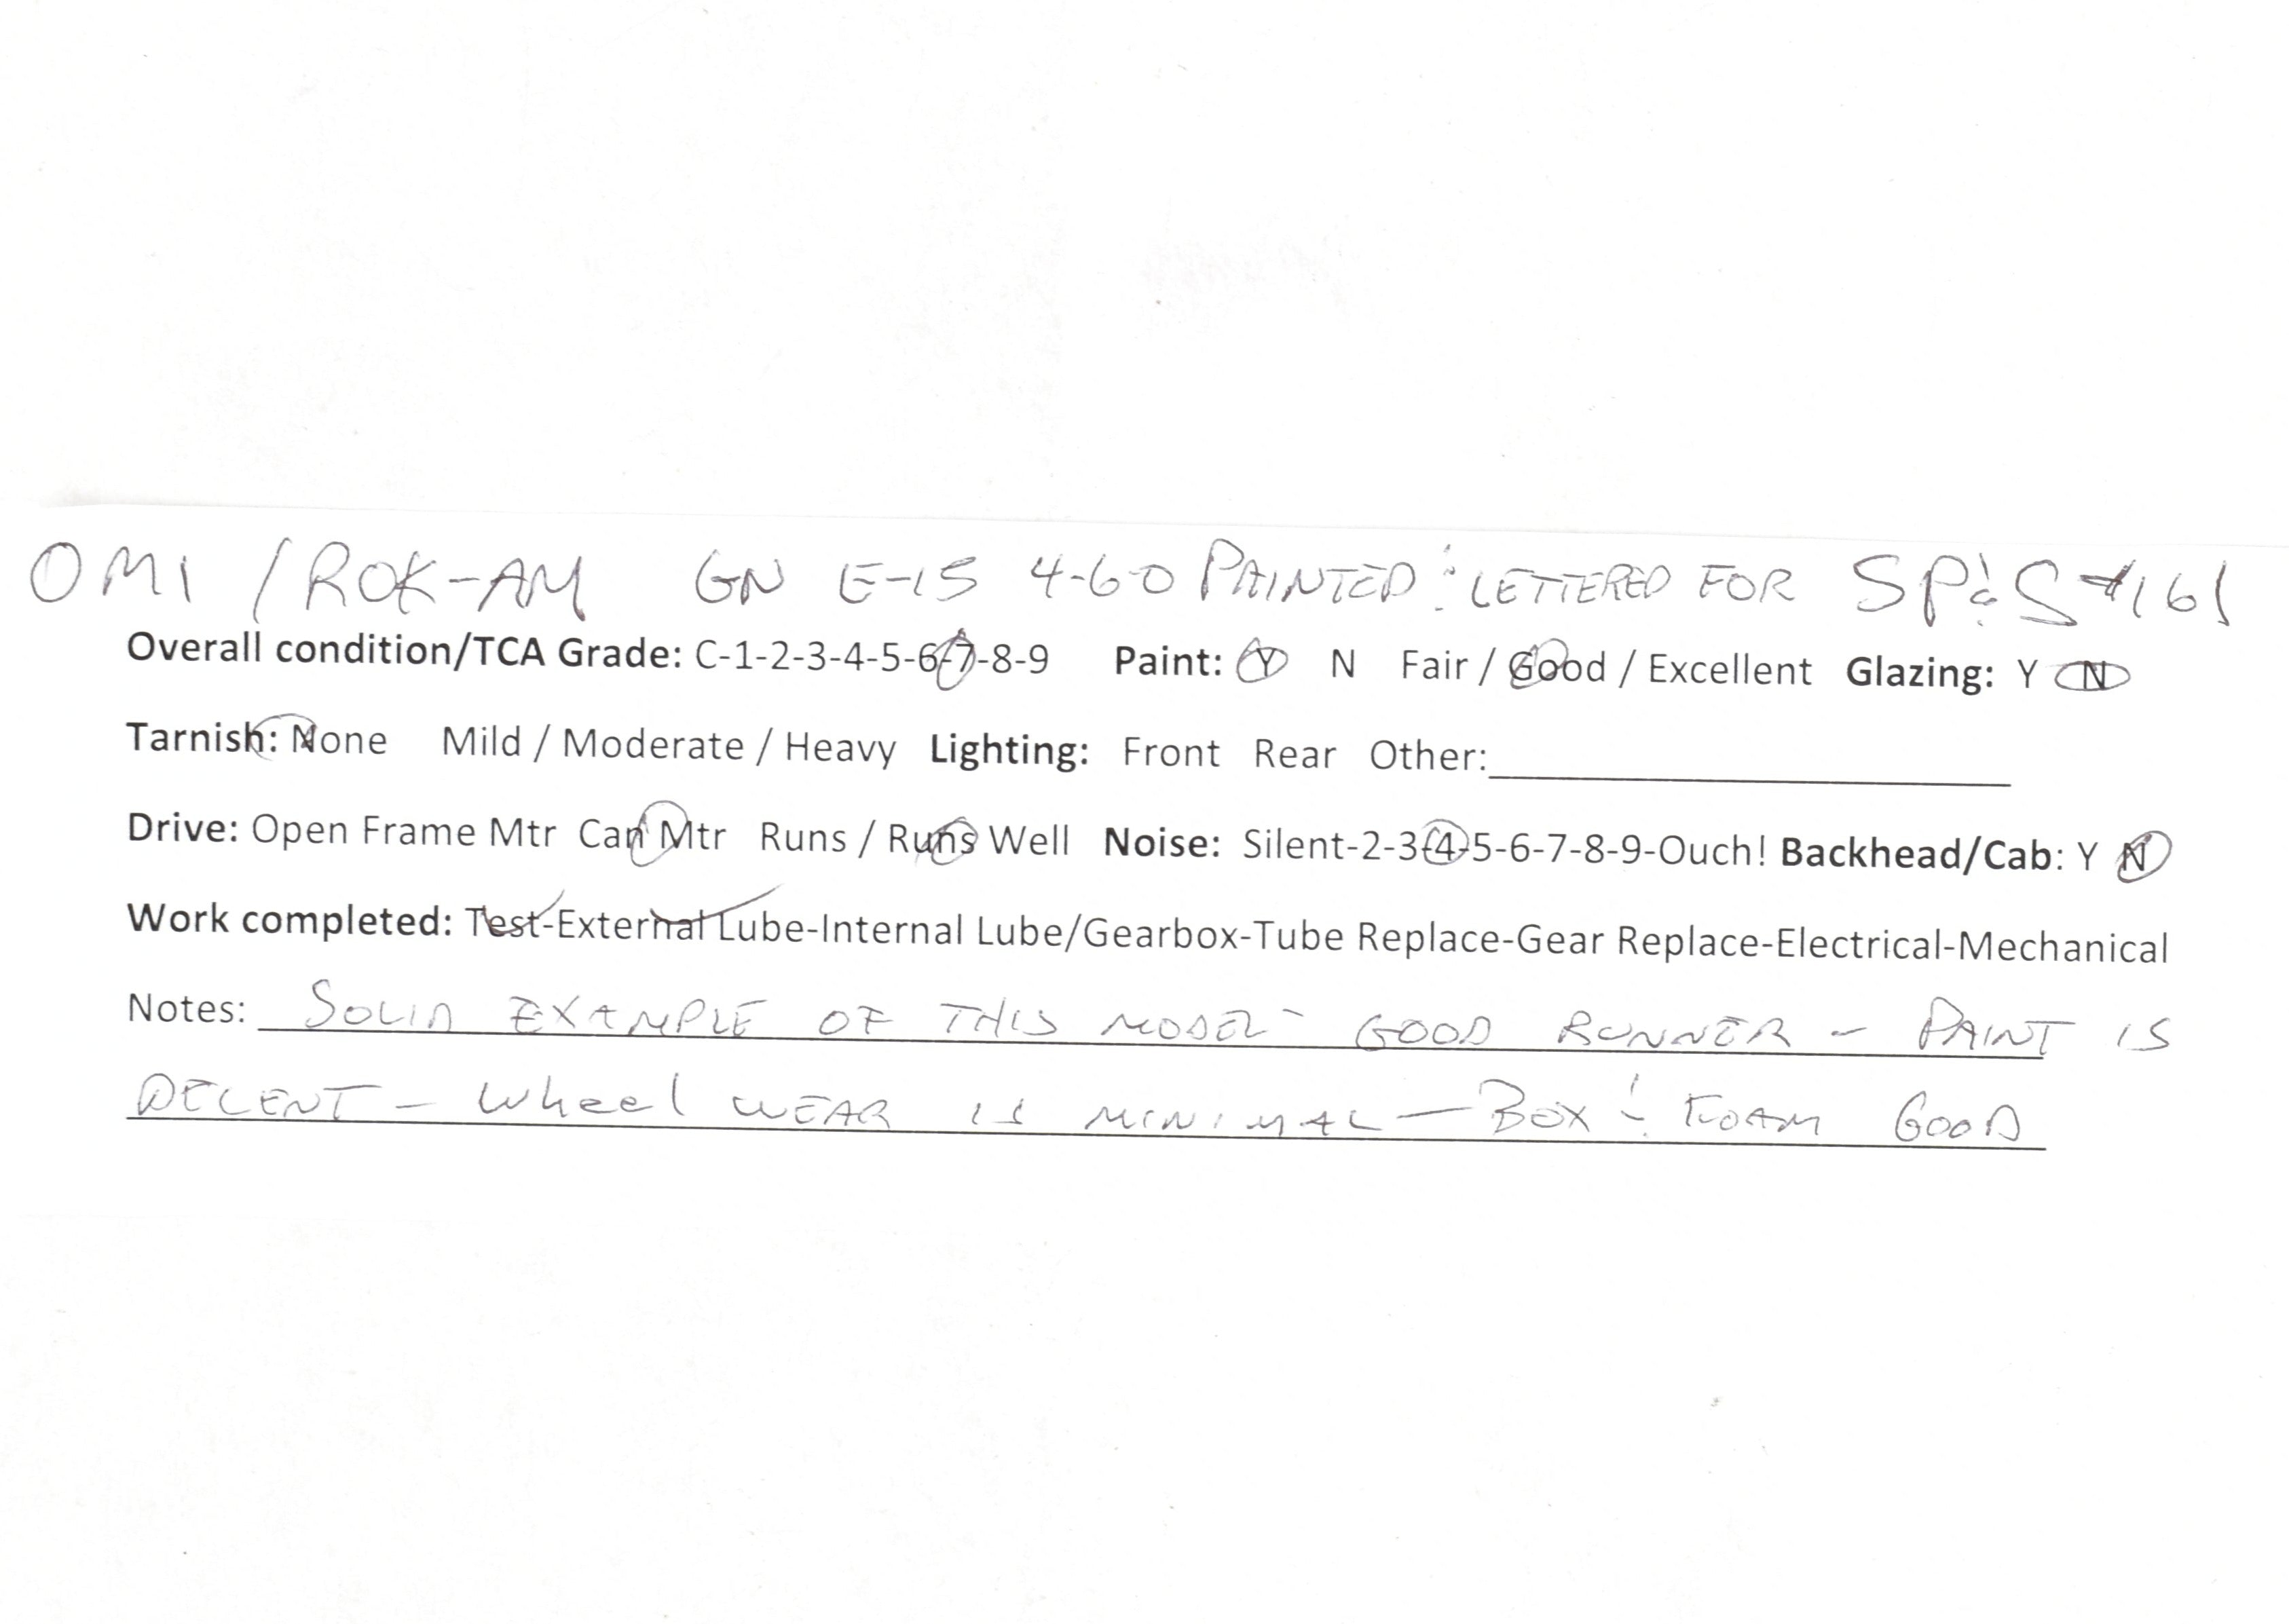 OMI / ROK-AM GN E-15 4-6-0 PAINTED & LETTERED FOR SP&S #161
Overall condition/TCA Grade: C-1-2-3-4-5-6-7-8-9 Paint: Y N Fair / Good / Excellent Glazing: Y N
Tarnish: None Mild / Moderate / Heavy Lighting: Front Rear Other:
Drive: Open Frame Mtr Can Mtr Runs / Runs Well Noise: Silent-2-3-4-5-6-7-8-9-Ouch! Backhead/Cab: Y N
Work completed: Test-External Lube-Internal Lube/Gearbox-Tube Replace-Gear Replace-Electrical-Mechanical
Notes: SOLID EXAMPLE OF THIS MODEL - GOOD RUNNER - PAINT IS
DECENT - Wheel WEAR IS MINIMAL - BOX & FOAM GOOD